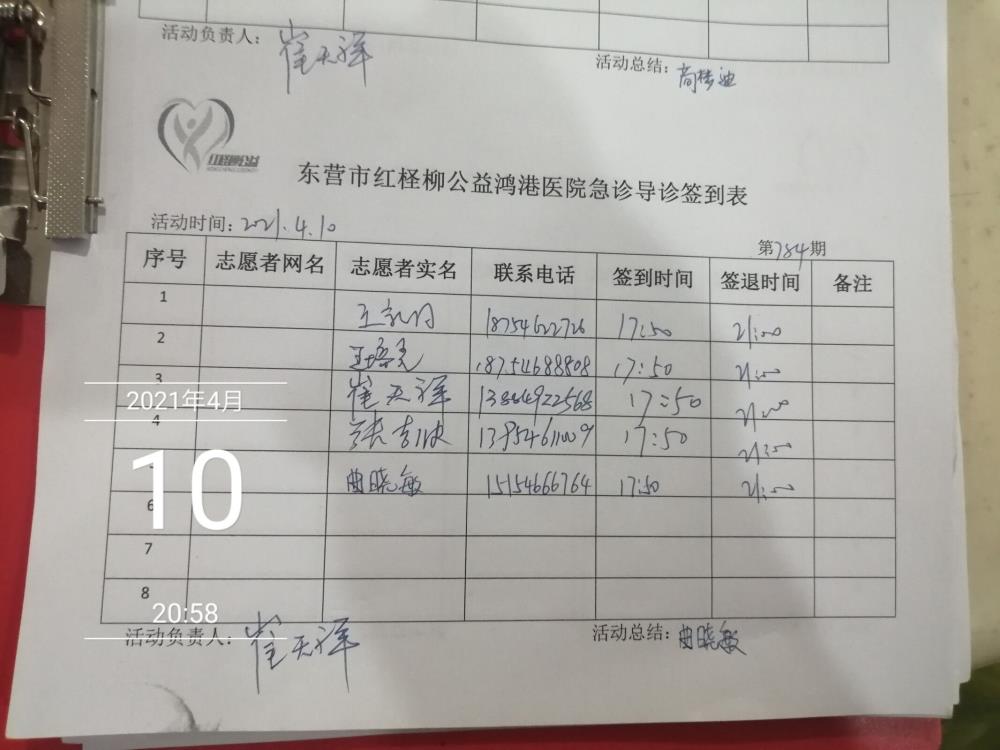 活动负责人：崔天祥
活动总结：
红柽柳公益
东营市红柽柳公益鸿港医院急诊导诊签到表
活动时间：2021.4.10
第784期
序号 志愿者网名 志愿者实名 联系电话 签到时间 签退时间 备注
1 18754622726 17:50 21:00
2 18754688808 17:50 21:00
3 崔天祥 17:50 21:00
4 13954611009 17:50 21:00
5 曲晓敏 15154666764 17:50 21:00
6
7
8
活动负责人：崔天祥
活动总结：曲晓敏
2021年4月
10
20:58